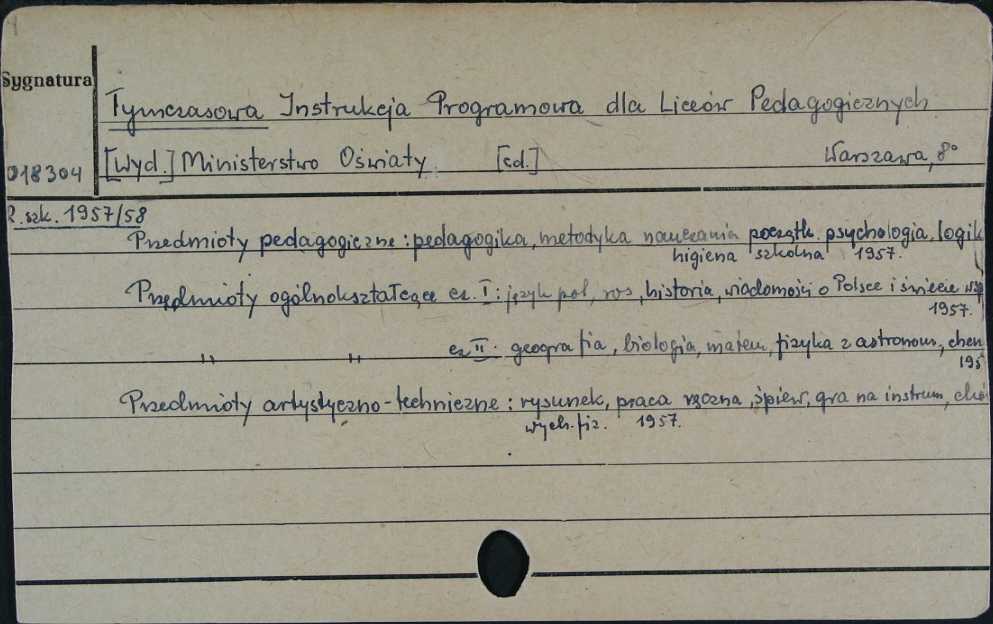 Sygnatura
Tymczasowa Instrukcja Programowa dla Liceów Pedagogicznych
018304 [Wyd.] Ministerstwo Oświaty [sd.] Warszawa, 8°
R. szk. 1957/58
Przedmioty pedagogiczne: pedagogika, metodyka nauczania początk. psychologia, logik
higiena szkolna 1957.
Przedmioty ogólnokształcące cz. I: język pol, ros, historia, wiadomości o Polsce i świecie wsp
1957.
" " cz II. geografia, biologia, matem, fizyka z astronom, chem
195
Przedmioty artystyczno-techniczne: rysunek, praca ręczna, śpiew, gra na instrum,
wych. fiz. 1957.